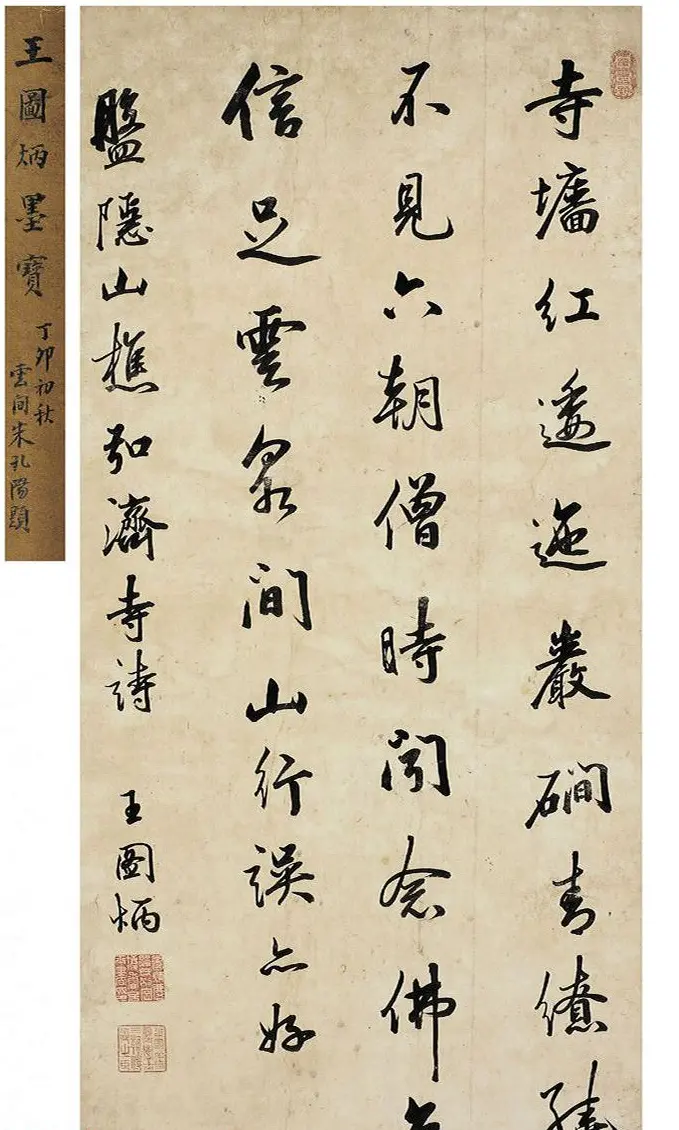 寺墻紅逶迤巖磵青繚
不見六朝僧時聞念佛
信足雲泉間山行誤亦好
隱山樵弘濟寺詩 王圖炳
王圖炳墨寶
丁卯初秋
雲間朱孔陽題